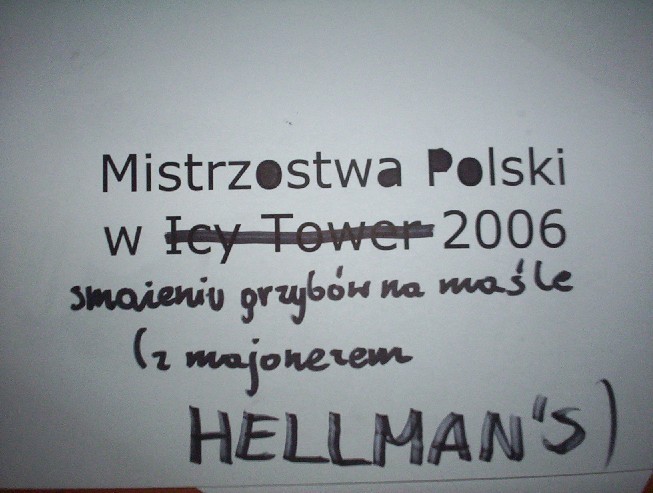 Mistrzostwa Polski
w Icy Tower 2006
smażeniu grzybów na maśle
(z majonezem
HELLMAN'S)